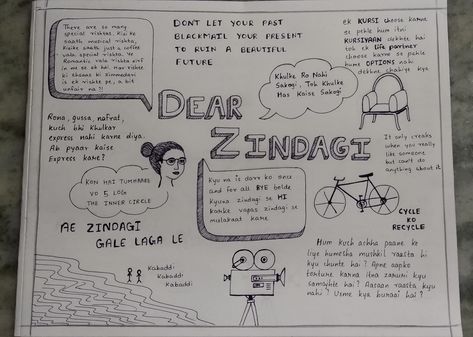 There are so many
special rishtas. Kisi ke
saath musical rishta,
Kisike saath just a coffee
wala special rishta. Ye
Romantic wala rishta sirf
in me se ek hai. Har rishte
ki ehsaas ki zimmedari
is ek rishte pe, a bit
unfair na ?!
DONT LET YOUR PAST
BLACKMAIL YOUR PRESENT
TO RUIN A BEAUTIFUL
FUTURE
ek KURSI choose karne
se pehle hum itni
KURSIYAAN dekhte hai
toh ek life partner
choose karne se pehle
hume OPTIONS nahi
dekhna chahiye kya
Khulke Ro Nahi
Sakogi, Toh Khulke
Has Kaise Sakogi
DEAR
ZINDAGI
Rona, gussa, nafrat,
kuch bhi khulkar
express nahi karne diya.
Ab pyaar kaise
Express kare?
It only creaks
when you really
like someone
but can't do
anything about it
KON HAI TUMHAREE
VO 5 LOG
THE INNER CIRCLE
Kyu na is darr ko once
and for all BYE bolde
Kyuna zindagi se HI
karke vapas zindagi se
mulakaat kare
CYCLE
KO
RECYCLE
AE ZINDAGI
GALE LAGA LE
Kabaddi
Kabaddi
Kabaddi
Hum kuch achha paane ke
liye humesha mushkil raasta hi
kyu chunte hai ? Apne aapko
torture karna itna zaruri kyu
samajhte hai ? Aasaan raasta kyu
nahi ? Usme kya buraai hai ?